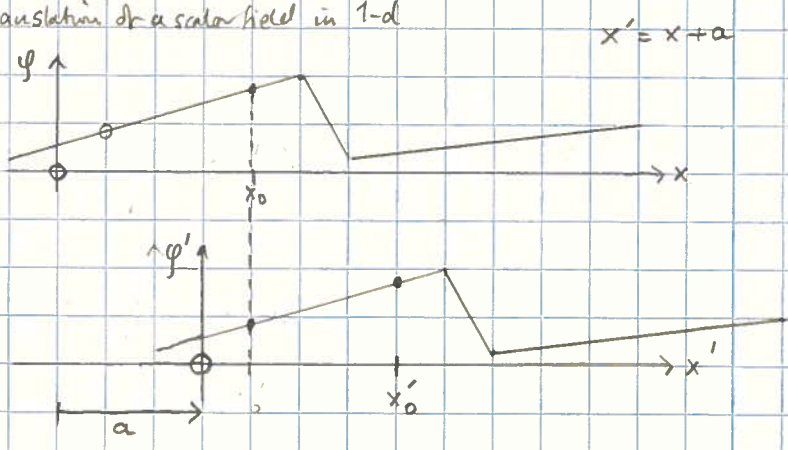 translation of a scalar field in 1-d
x' = x + a
φ
x
x₀
φ'
x'
x₀'
a